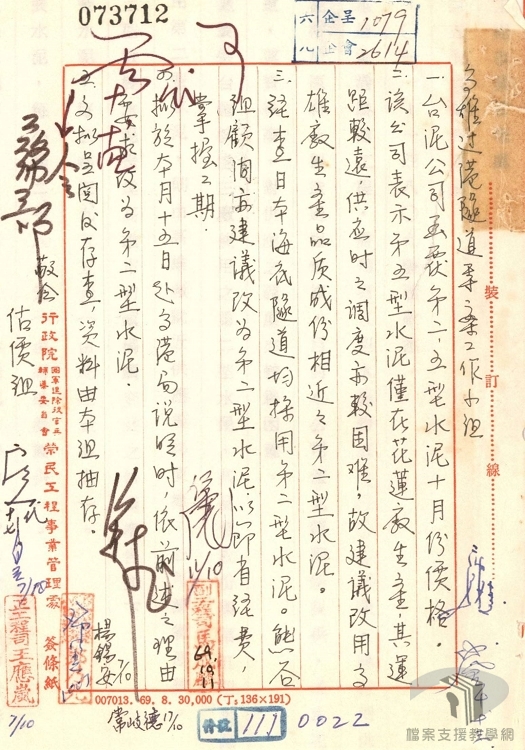 073712
六 企呈 1079
九 企會 2614
高雄過港隧道專案工作小組
一台泥公司函送第二、五型水泥十月份價格。
二該公司表示第五型水泥僅在花蓮廠生產,其運
距較遠,供應時之調度亦較困難,故建議改用高
雄廠生產品質成份相近之第二型水泥。
三經查日本海底隧道均採用第二型水泥。熊谷
組顧問亦建議改為第二型水泥,以節省經費
掌握工期.
四擬於本月十五日赴高港局說明時,依前述之理由
要求改為第二型水泥.
五文擬呈閱後存查,資料由本組抽存.
敬會
估價組
裝訂線
行政院國軍退除役官兵輔導委員會榮民工程事業管理處 簽條紙
正工程司王應嵐
7/10
楊錫安 7/10
常岐德 17/10
69.10.11
007013. 69. 8. 30,000 (丁: 136×191)
件發 111 0022
檔案支援教學網